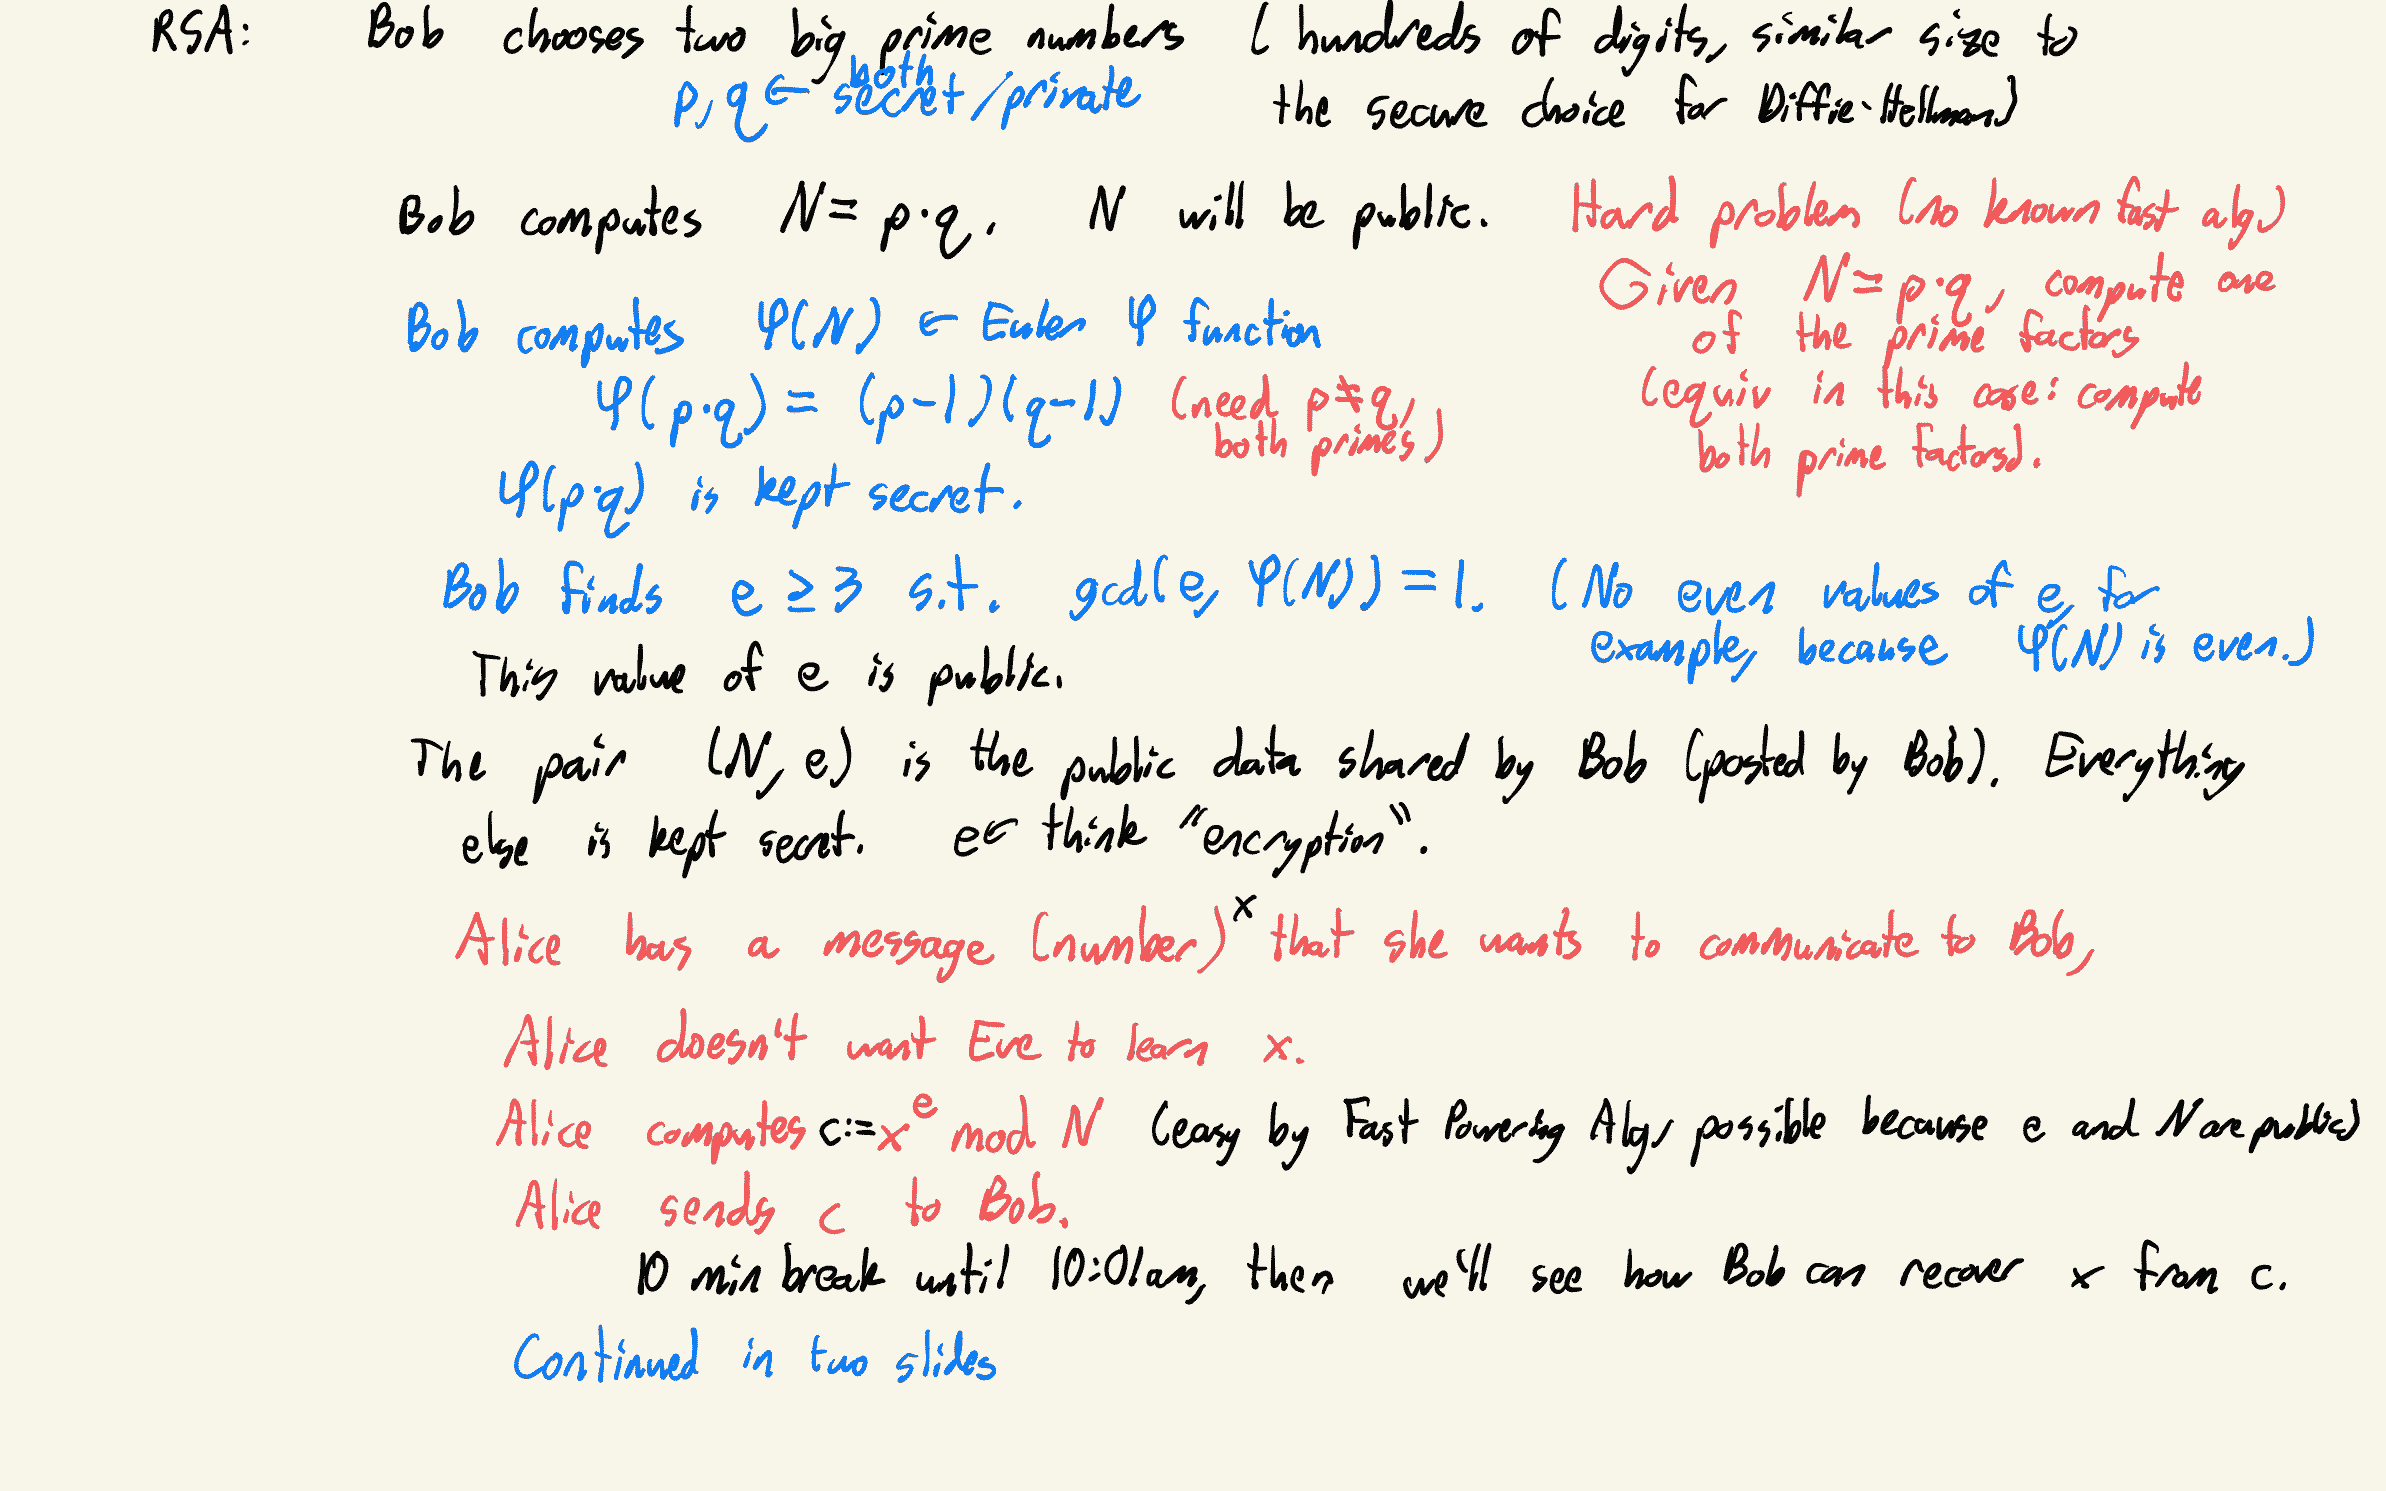 RSA: Bob chooses two big prime numbers (hundreds of digits, similar size to
p, q ← both secret/private the secure choice for Diffie-Hellman)
Bob computes N = p·q. N will be public. Hard problem (no known fast alg.)
Given N = p·q, compute one
of the prime factors
(equiv in this case: compute
both prime factors).
Bob computes φ(N) ← Euler φ function
φ(p·q) = (p-1)(q-1) (need p≠q,
both primes)
φ(p·q) is kept secret.
Bob finds e ≥ 3 s.t. gcd(e, φ(N)) = 1. (No even values of e, for
example, because φ(N) is even.)
This value of e is public.
The pair (N, e) is the public data shared by Bob (posted by Bob). Everything
else is kept secret. e ← think "encryption".
Alice has a message (number) x that she wants to communicate to Bob,
Alice doesn't want Eve to learn x.
Alice computes c:=x^e mod N (easy by Fast Powering Alg, possible because e and N are public)
Alice sends c to Bob.
10 min break until 10:01am, then we'll see how Bob can recover x from c.
Continued in two slides